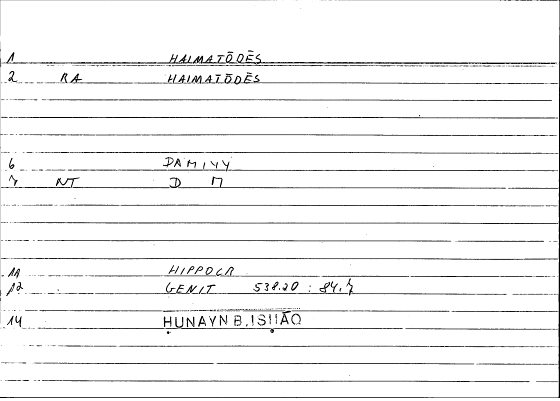 1 HAIMATŌDĒS
2 RA HAIMATŌDĒS
6 DAMIYY
7 NT D M
11 HIPPOCR
12 GENIT 538.20 : 84.7
14 ḤUNAYN B. ISḤĀQ